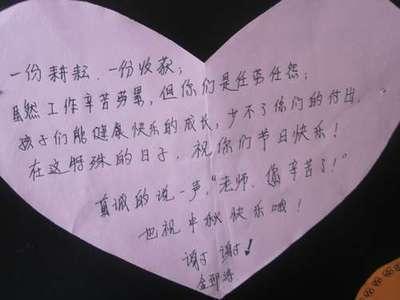 一份耕耘、一份收获;
虽然工作辛苦劳累,但你们是任劳任怨;
孩子们能健康快乐的成长,少不了你们的付出,
在这特殊的日子,祝你们节日快乐!
真诚的说一声,“老师,您辛苦了!”
也祝中秋快乐哦!
谢谢!